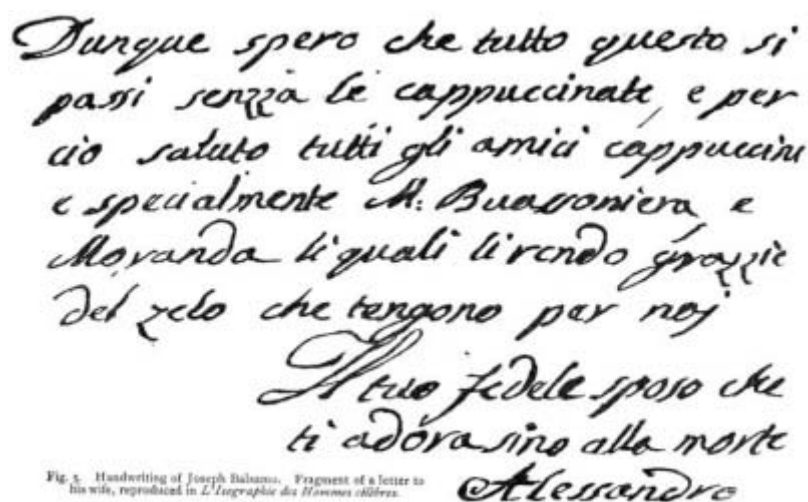 Dunque spero che tutto questo si
passi senzza le cappuccinate, e per
ciò saluto tutti gli amici cappuccini
e specialmente M: Buassoniera e
Moranda li quali li rendo grazzie
del zelo che tengono per noj
Il tuo fedele sposo che
ti adora sino alla morte
Alessandro
Fig. 5. Handwriting of Joseph Balsamo. Fragment of a letter to
his wife, reproduced in L'Isographie des Hommes célèbres.